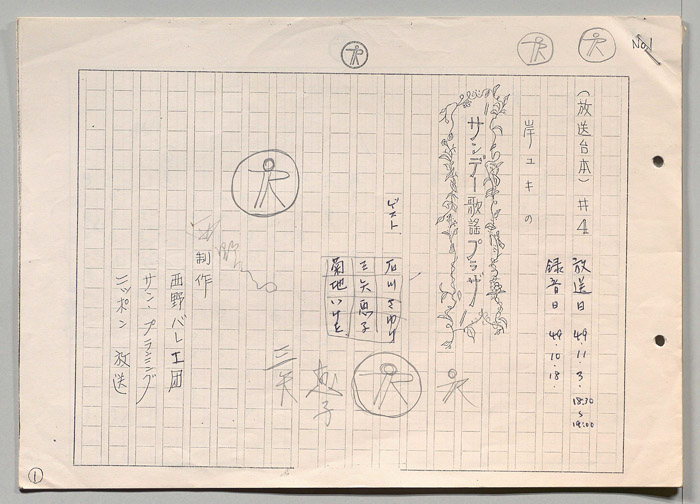 No.1
(放送台本) #4
放送日 49.11.3. 18:30〜19:00
録音日 49.10.18.
岸ユキの
サンデー歌謡プラザ
ゲスト
石川さゆり
三矢恵子
菊地いけと
三矢恵子
制作
西野バレエ団
サン・プランニング
ニッポン放送
1